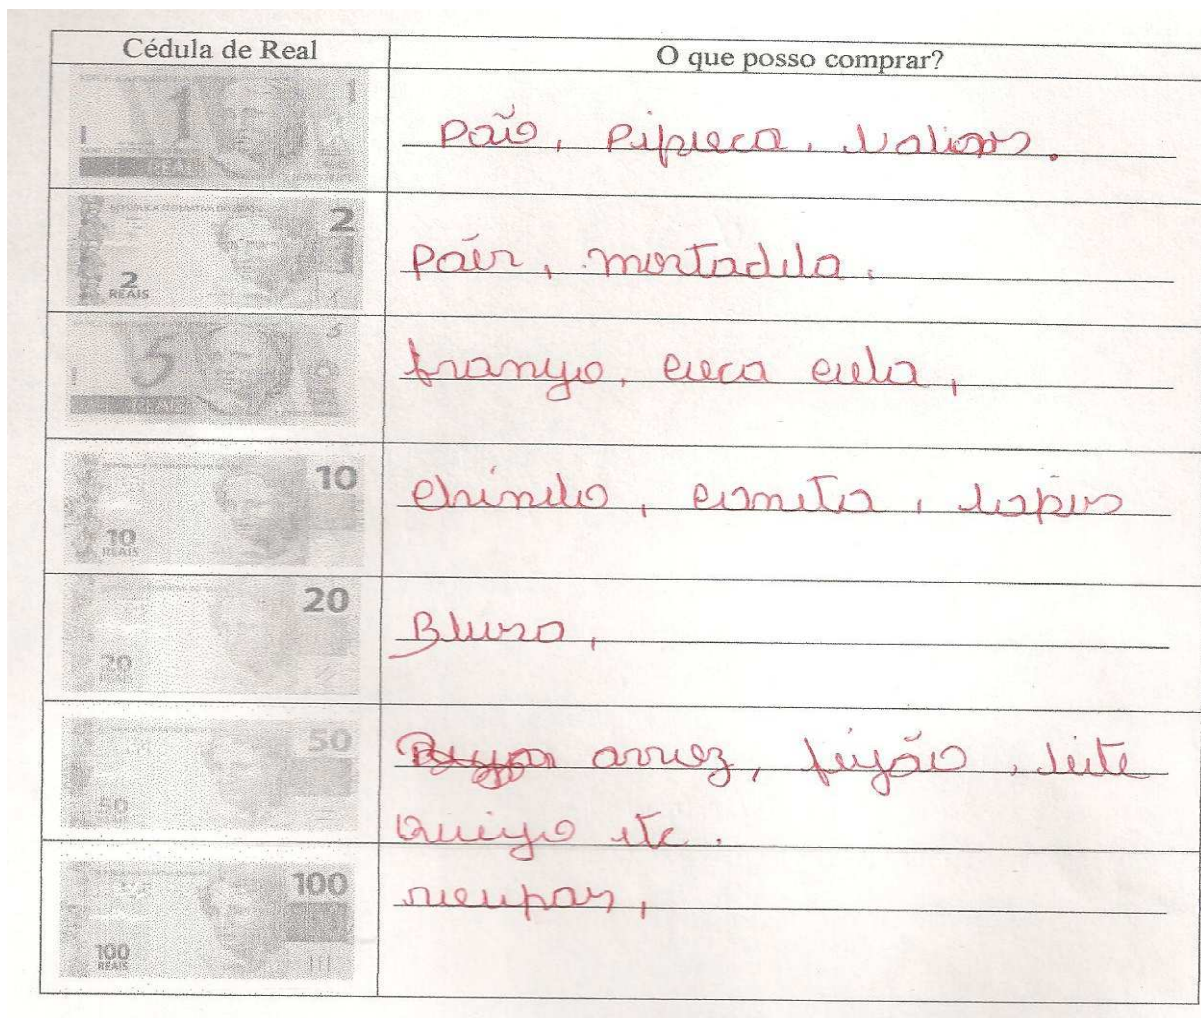 Cédula de Real
O que posso comprar?
1
1
REAL
pão, pipoca, balions.
2
2
REAIS
pães, mortadela,
5
5
REAIS
frango, coca cola,
10
10
REAIS
chinelo, caneta, lapis
20
20
REAIS
Blusa,
50
50
arroz, feijão, leite
queijo etc.
100
100
REAIS
roupas,